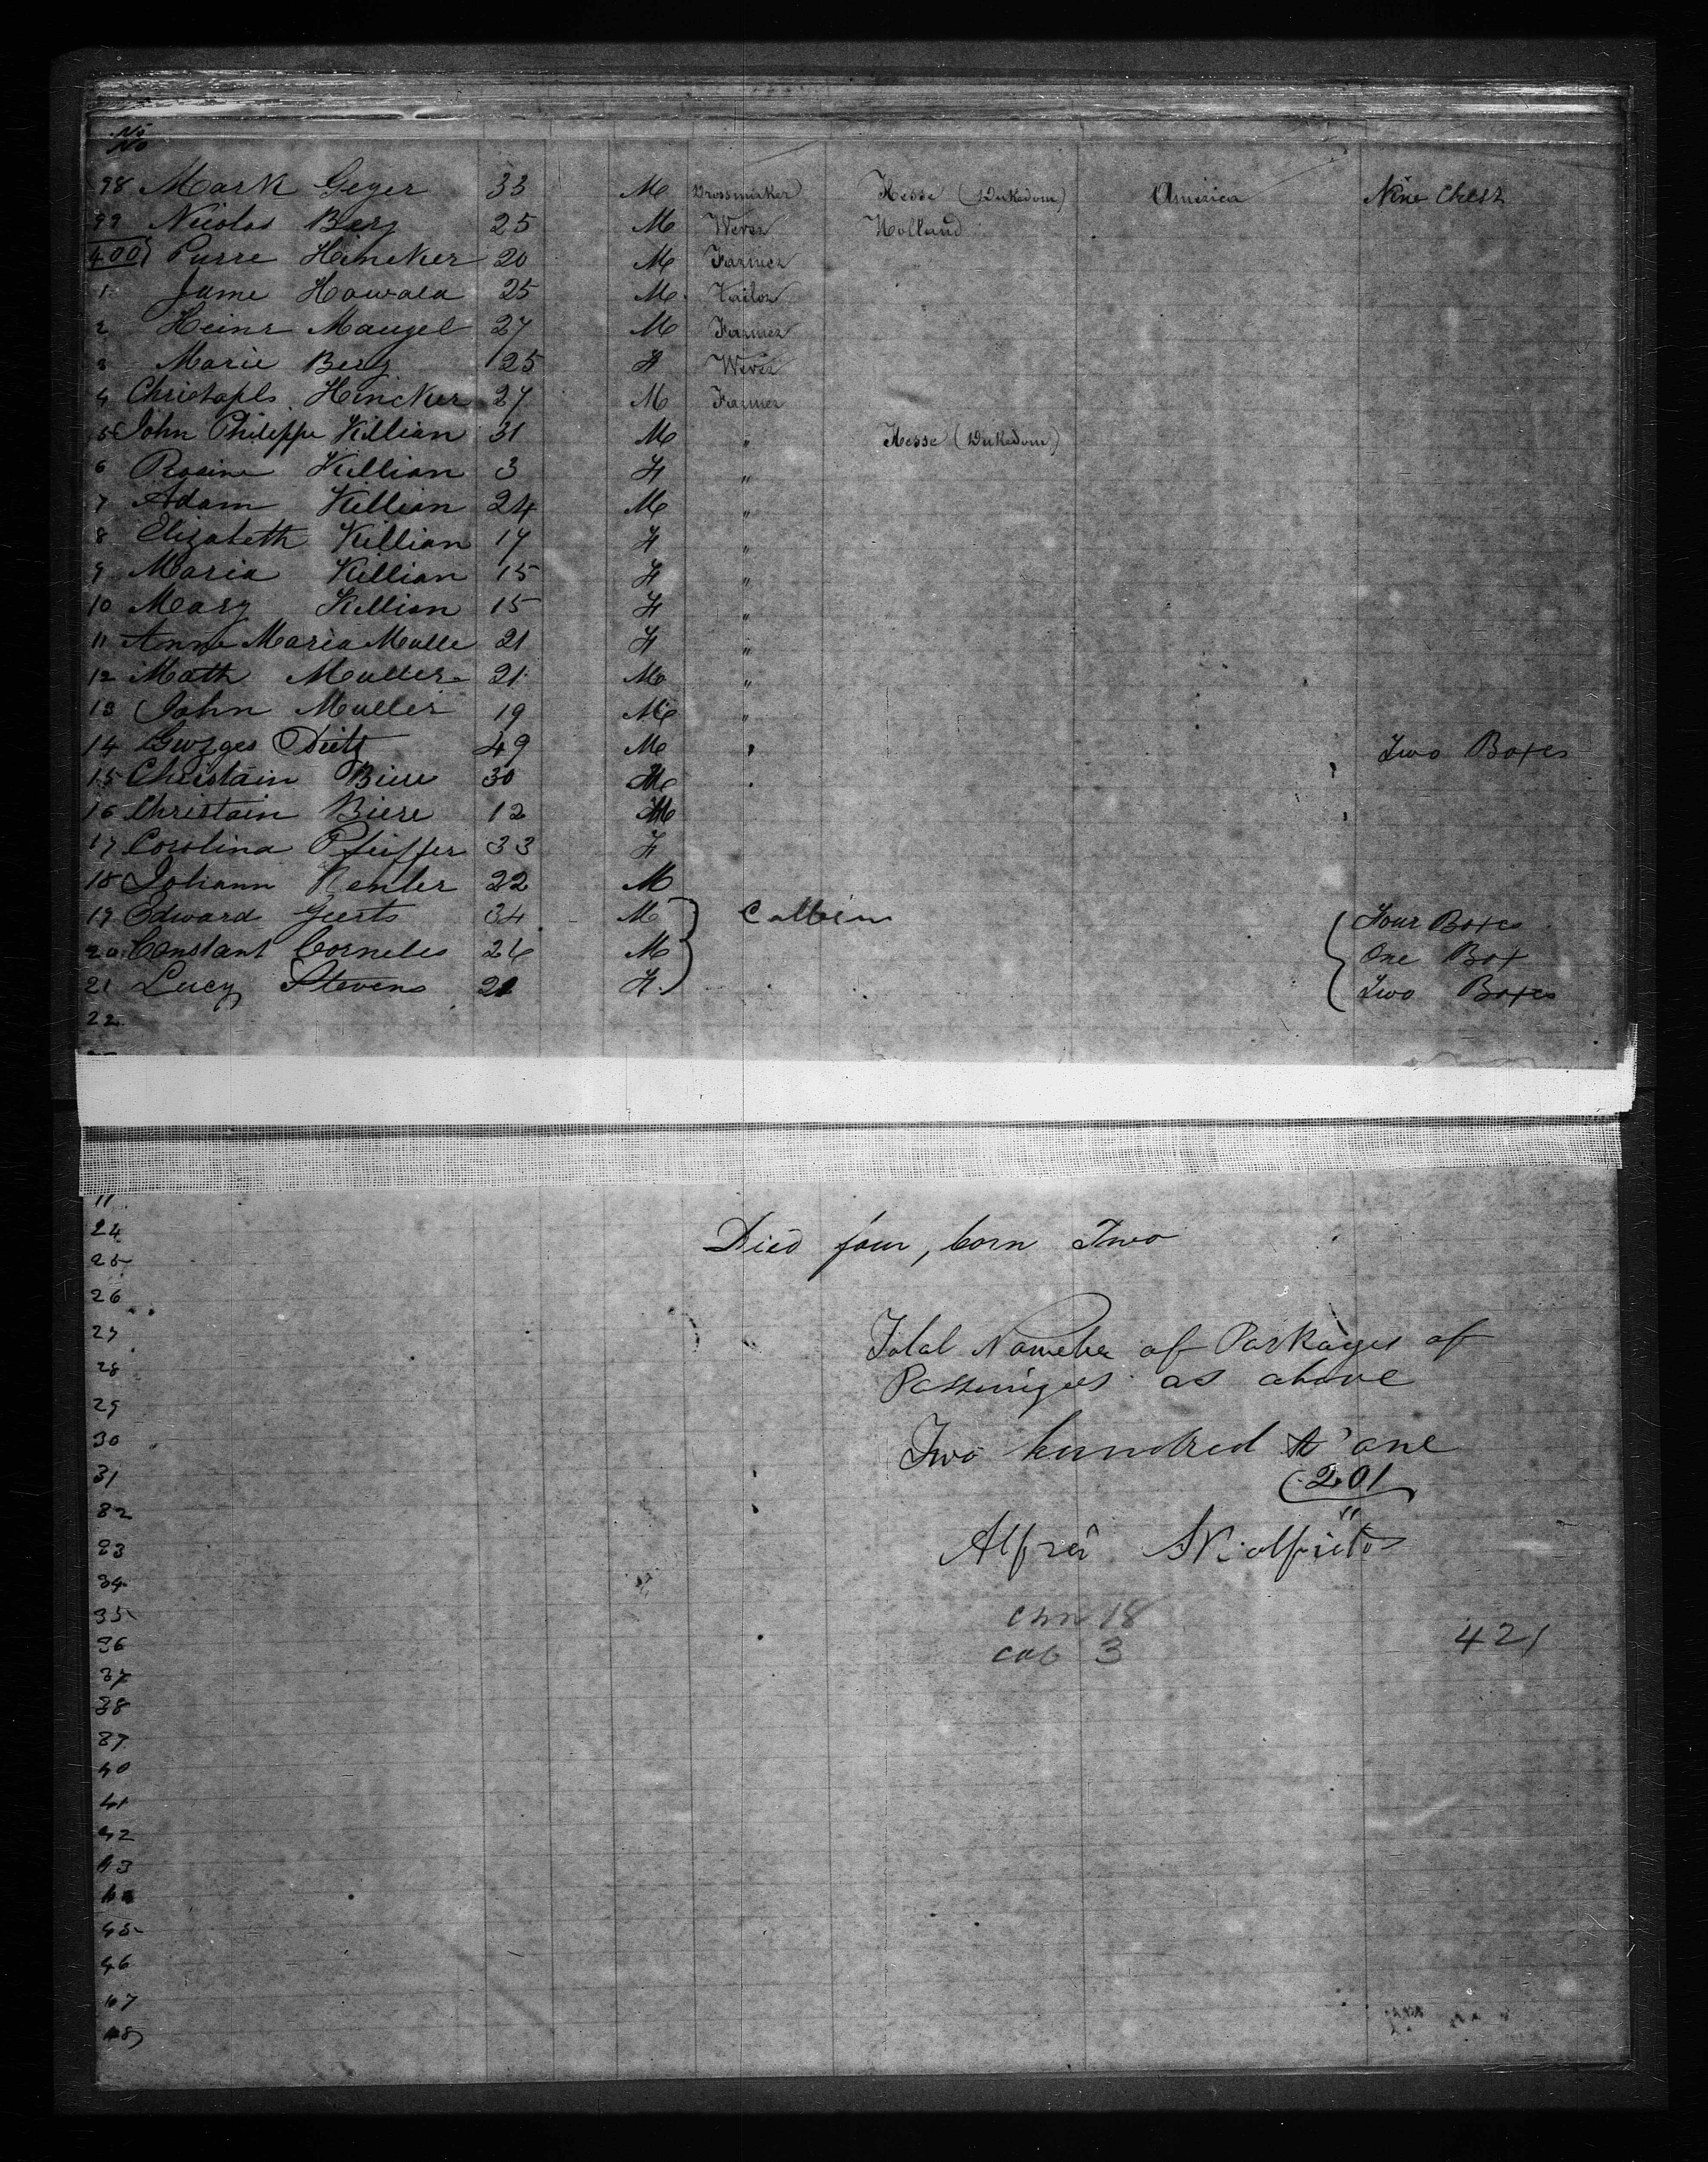 No
No
98 Mark Geger 33 M Drossmaker Hesse (Dukedom) America Nine Chests
99 Nicolas Berg 25 M Wever Holland
400 Pierre Hincker 20 M Farmer
1 Jame Howald 25 M Tailor
2 Heinr Maugel 27 M Farmer
3 Marie Berg 25 F Wever
4 Christophs Hincker 27 M Farmer
5 John Philippe Killian 31 M " Hesse (Dukedom)
6 Rosine Killian 3 F "
7 Adam Killian 24 M "
8 Elizabeth Killian 17 F "
9 Maria Killian 15 F "
10 Mary Killian 15 F "
11 Anne Maria Mulle 21 F "
12 Math Muller 21 M "
13 John Muller 19 M "
14 Georges Dietz 49 M " Two Boxes
15 Christain Biere 30 M
16 Christain Biere 12 M
17 Carolina Pfeiffer 33 F
18 Johann 22 M
19 Edward Geerts 34 M Four Boxes
20 Constant Cornelis 26 M One Box
21 Lucy Stevens 21 F Two Boxes
22
11
24 Died four, born Two
25
26
27 Total Number of Packages of
28 Passengers as above
29
30 Two hundred & one
31 (201
32 "
33 Alfred
34
35 18
36 cab 3 421
37
38
39
40
41
42
43
44
45
46
47
48